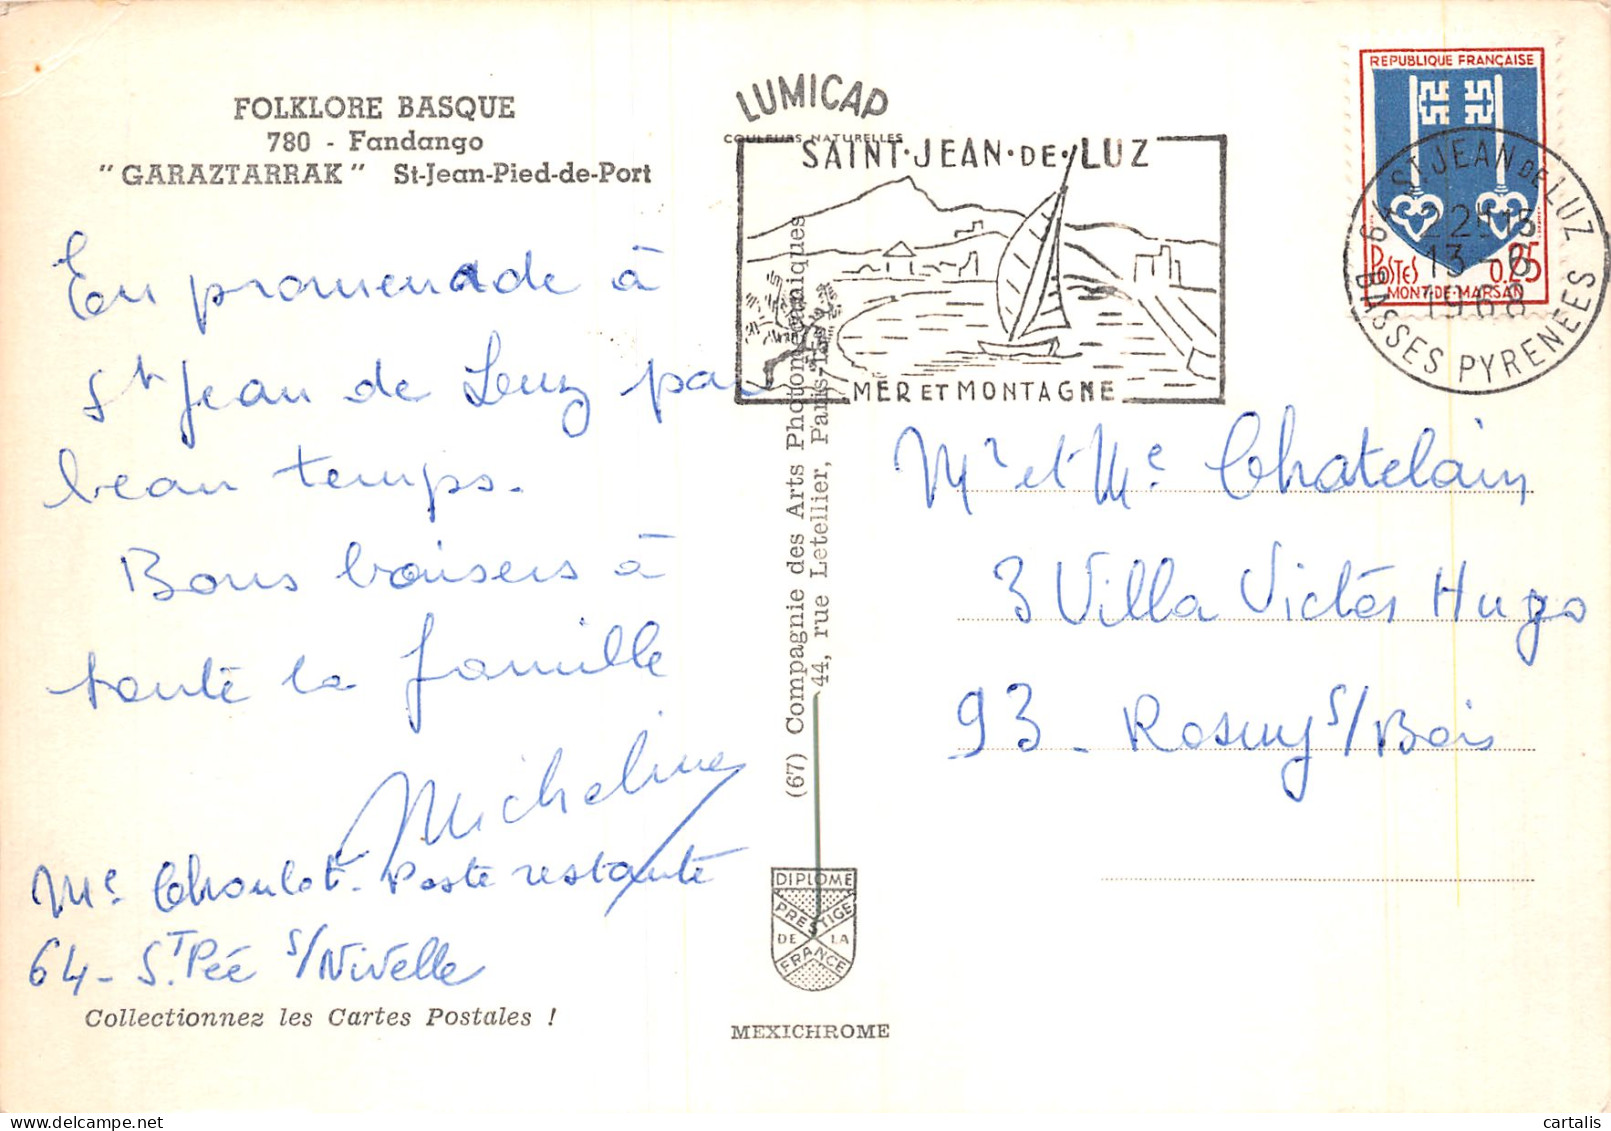 FOLKLORE BASQUE
780 - Fandango
"GARAZTARRAK" St-Jean-Pied-de-Port
En promenade à
St Jean de Luz par
beau temps.
Bons baisers à
toute la famille
Micheline
Me Choulot. Poste restante
64 - St Pée s/Nivelle
Collectionnez les Cartes Postales !
LUMICAP
COULEURS NATURELLES
SAINT·JEAN·DE·LUZ
MER ET MONTAGNE
(67) Compagnie des Arts Photomécaniques
44, rue Letellier, Paris-15
DIPLOME
PRESTIGE
DE LA
FRANCE
MEXICHROME
REPUBLIQUE FRANÇAISE
POSTES 0.25
MONT-DE-MARSAN
64 ST JEAN DE LUZ
22H15
13 - 6
1968
BASSES PYRENEES
Mr et Me Chatelain
3 Villa Victor Hugo
93 - Rosny s/Bois
cartalis
delcampe.net